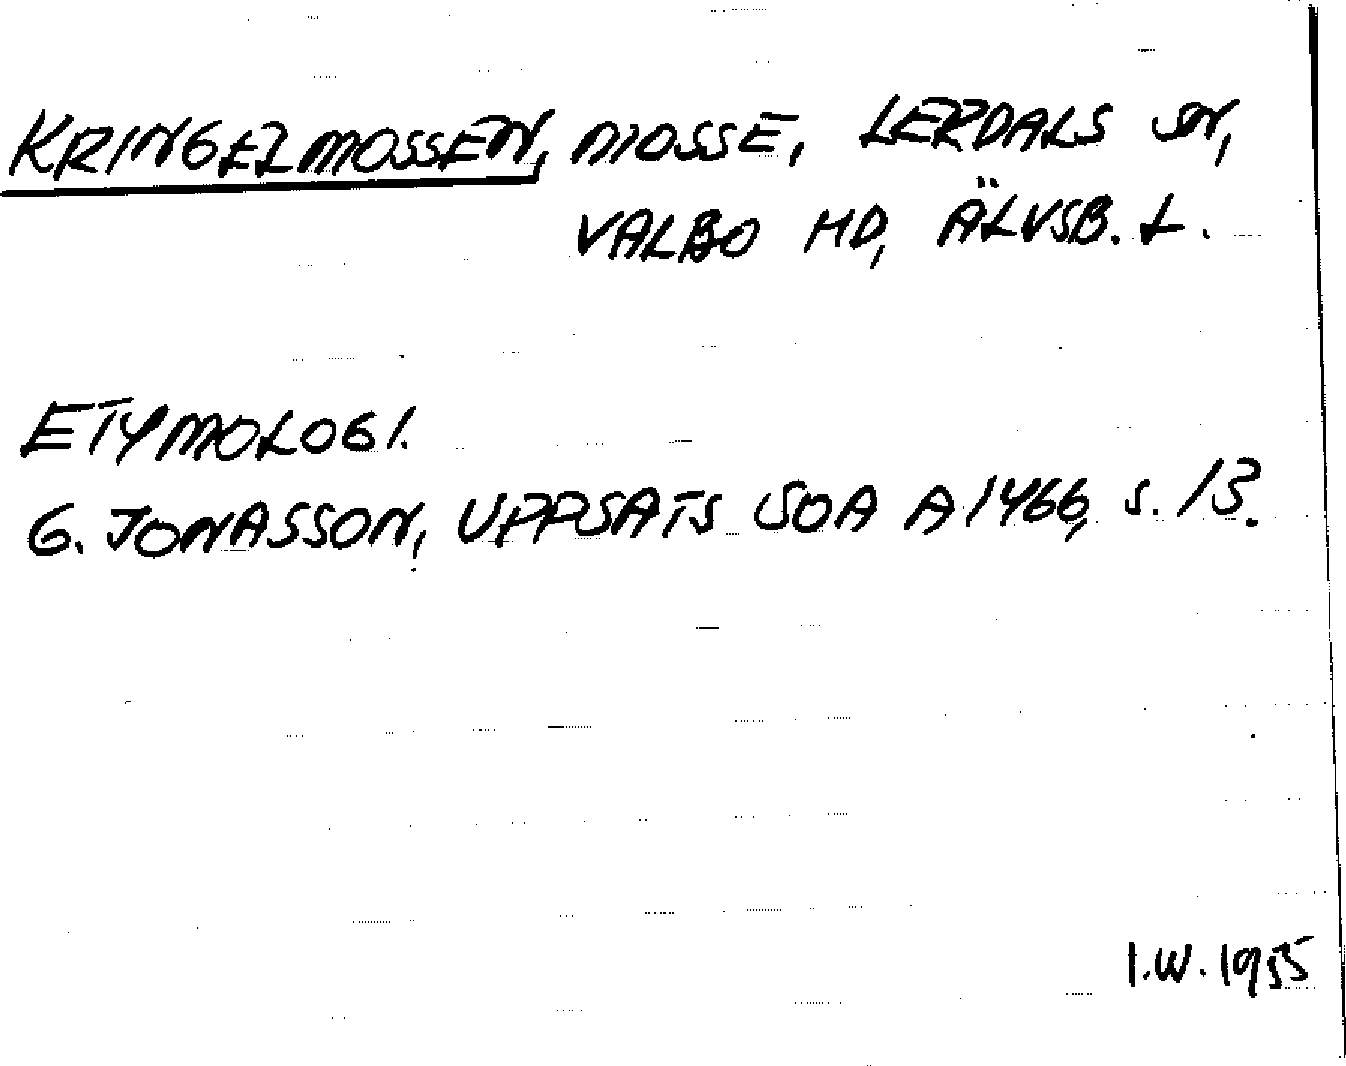 KRINGELMOSSEN, MOSSE, LERDALS SN,
VALBO HD, ÄLVSB. L.
ETYMOLOGI.
G. JONASSON, UPPSATS SOA A1466, S. 13.
I.W. 1955